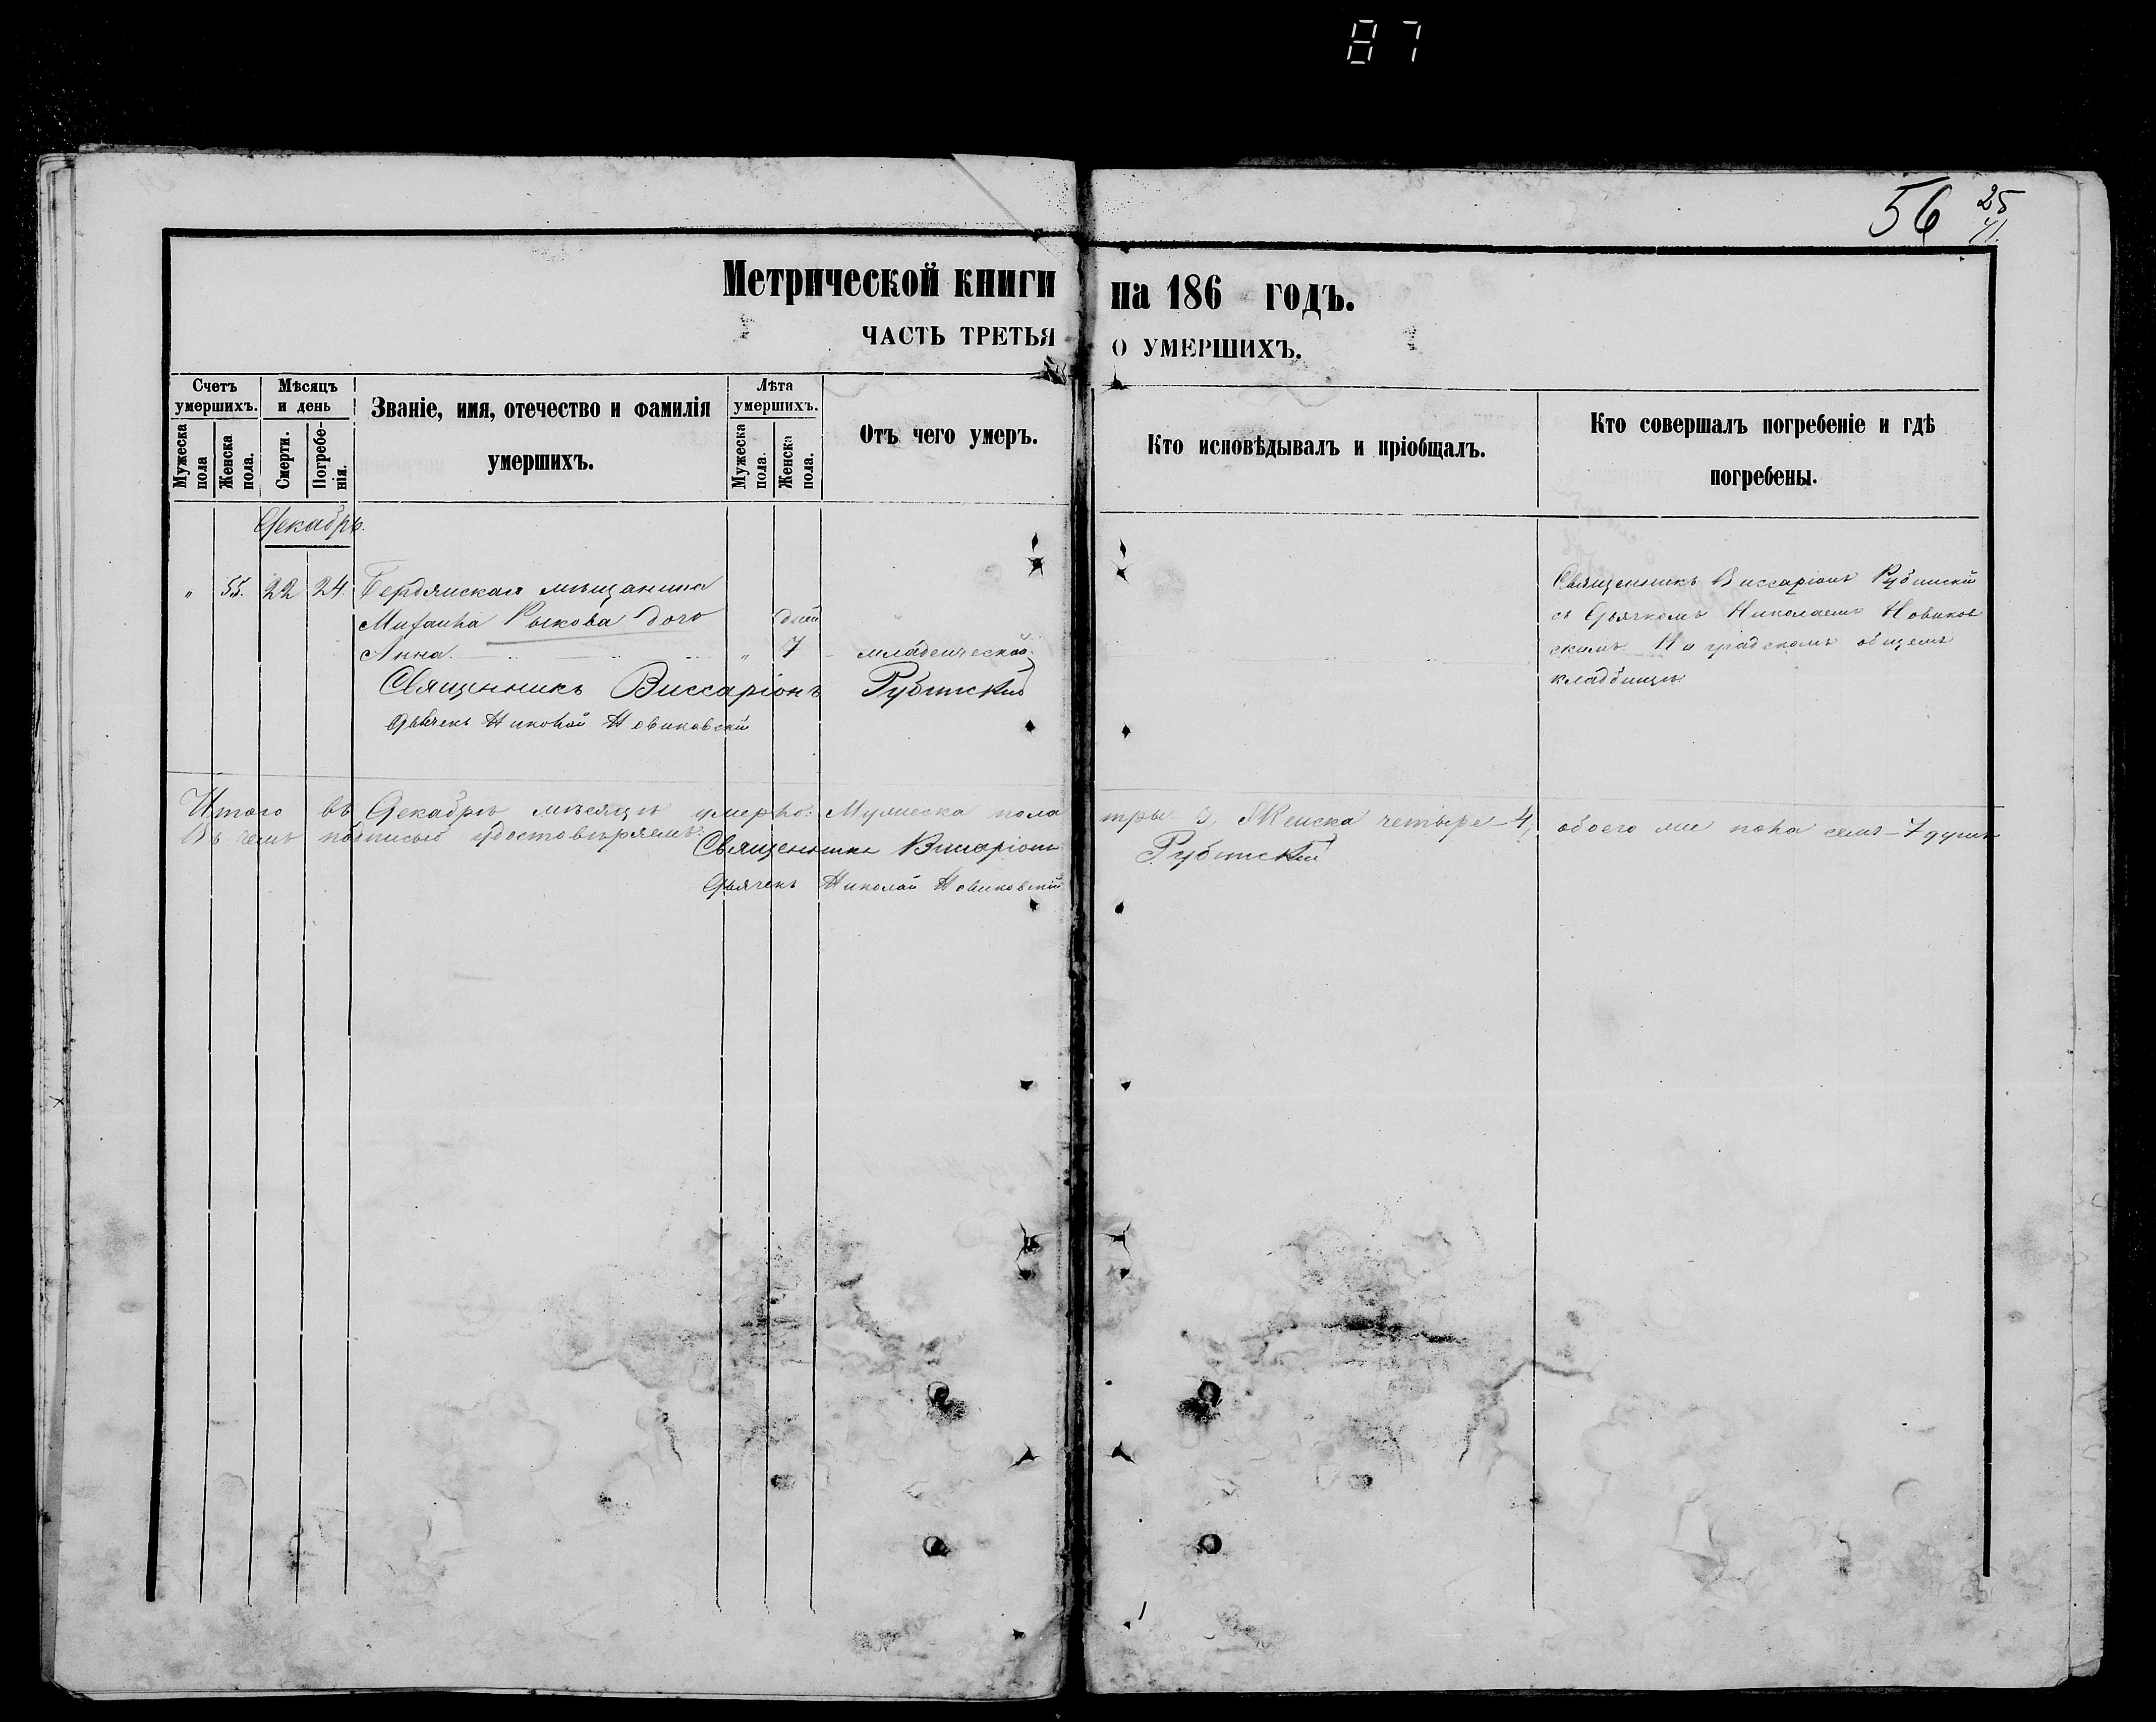 87
56 25
Метрической книги на 186 годъ.
ЧАСТЬ ТРЕТЬЯ О УМЕРШИХЪ.
Счетъ умершихъ.
Мужеска пола
Женска пола.
Мѣсяцъ и день
Смерти.
Погребе-
нія.
Званіе, имя, отечество и фамилія
умершихъ.
Лѣта умершихъ.
Мужеска пола.
Женска пола.
Отъ чего умеръ.
Кто исповѣдывалъ и пріобщалъ.
Кто совершалъ погребеніе и гдѣ
погребены.
Декабрь.
" 55. 22 24 Бердянскаго мѣщанина
Михаила Рыкова дочь дней
Анна " 7 младенческой
Священникъ Виссаріонъ Рубинскій
съ Дьячкомъ Николаемъ Новиков
скимъ На градскомъ общемъ
кладбищѣ
Священникъ Виссаріонъ Рубинскій
Дьячекъ Николай Новиковскій
Итого въ Декабрѣ мѣсяцѣ умерло: Мужеска пола три 3, Женска четыре - 4, обоего пола семь - 7 душъ
Въ чемъ подписью удостовѣряемъ:
Священникъ Виссаріонъ Рубинскій
Дьячекъ Николай Новиковскій